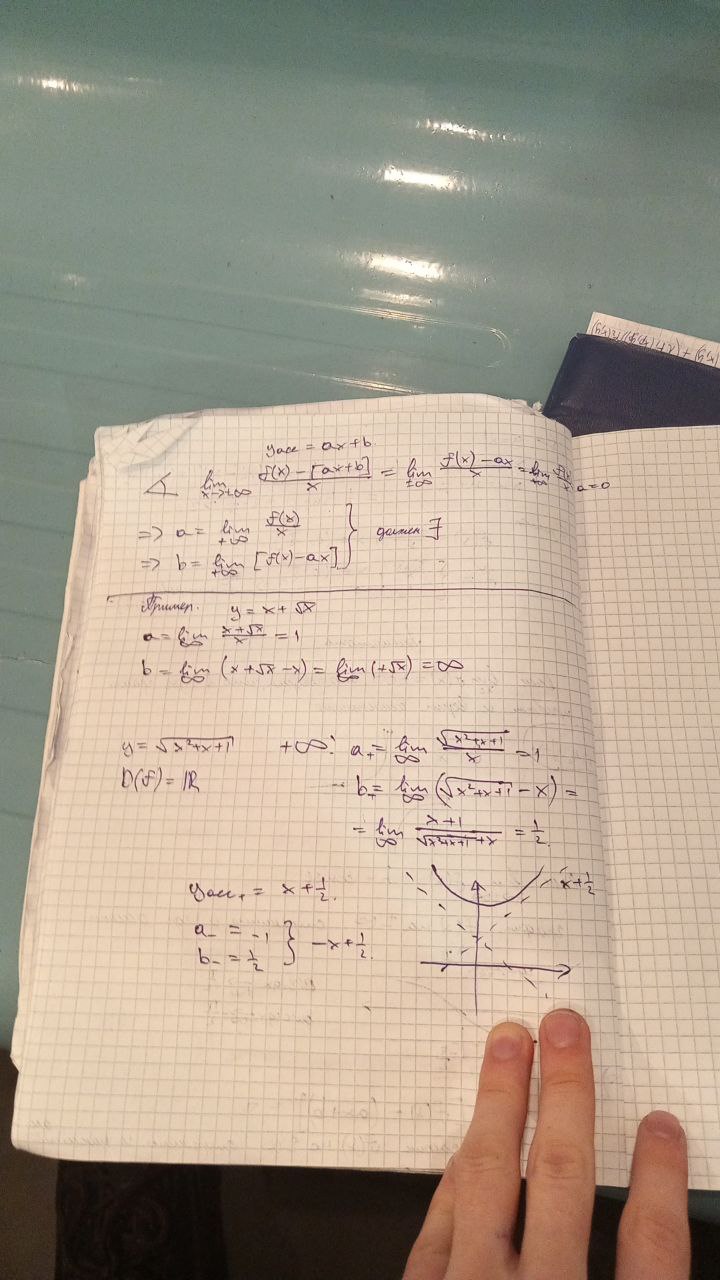 yас = ax+b.
∢ lim x→+∞ f(x)-[ax+b]/x = lim ±∞ f(x)-ax/x = lim +∞ f(x)/x - a = 0
=> a = lim +∞ f(x)/x
должен ∃
=> b = lim +∞ [f(x)-ax]
Пример. y = x + √x
a = lim ∞ x+√x/x = 1
b = lim ∞ (x+√x-x) = lim ∞ (+√x) = ∞
y = √x²+x+1 +∞: a₊ = lim ∞ √x²+x+1/x = 1
D(f) = ℝ b₊ = lim ∞ (√x²+x+1 - x) =
= lim ∞ x+1/√x²+x+1+x = 1/2.
yас₊ = x+1/2.
x+1/2
a₋ = -1
b₋ = 1/2 } -x+1/2.